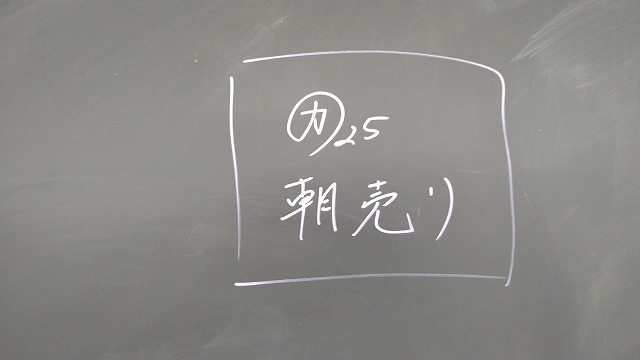 ㋕25
朝売り